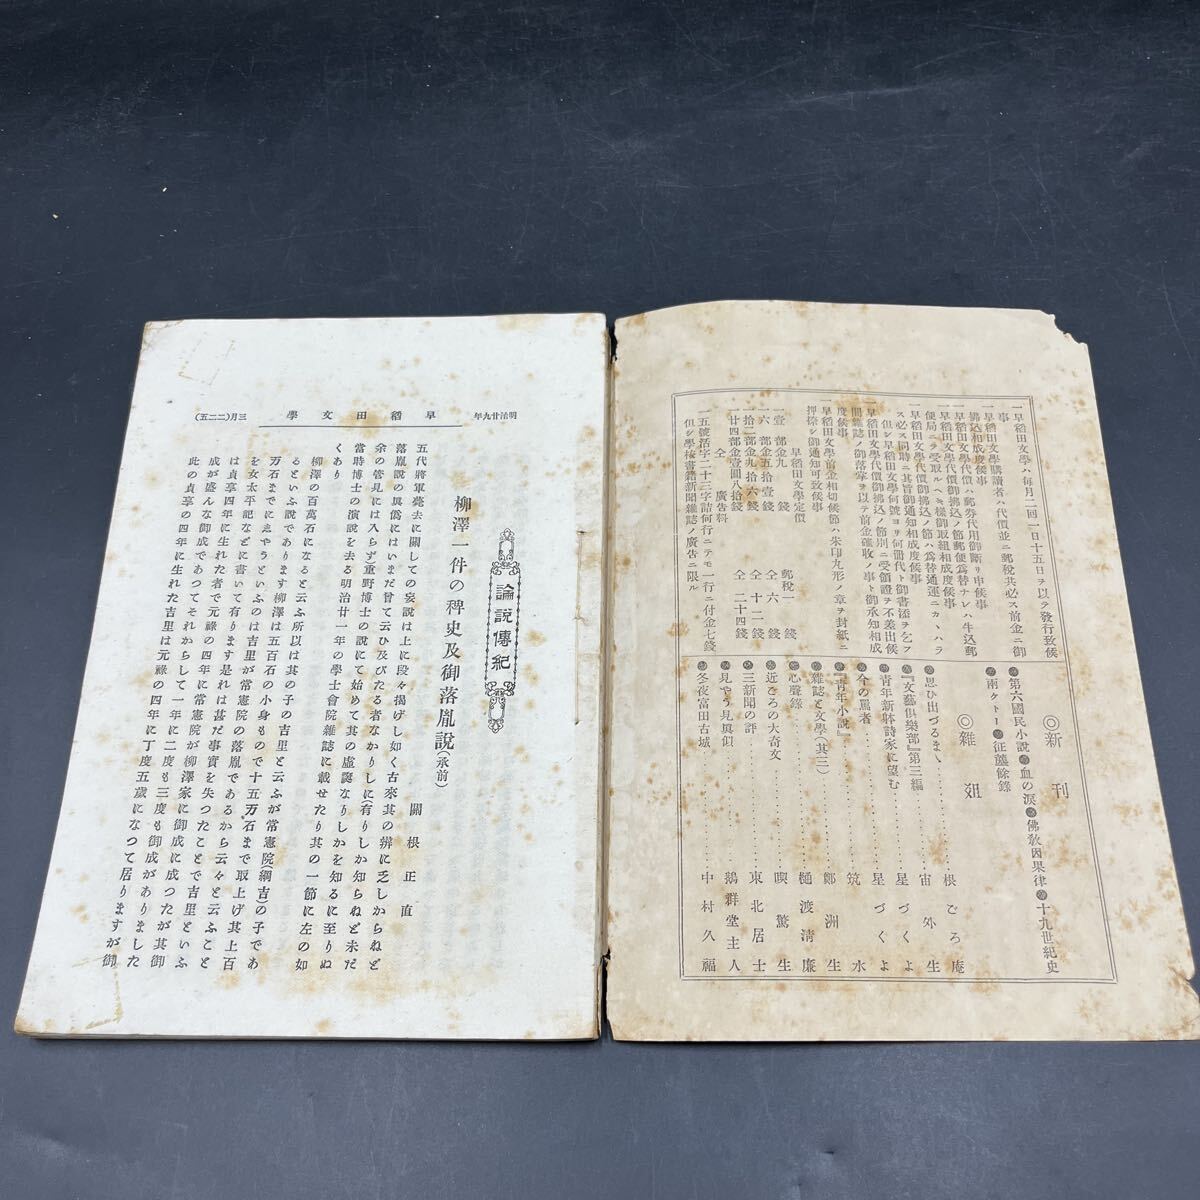 一早稻田文學ハ毎月二回一日十五日ヲ以テ發行致候
事
一早稻田文學購讀者ハ代價並ニ郵税共必ス前金ニ御
拂込相成度候事
一早稻田文學代價ハ郵券代用御斷リ申候事
一早稻田文學代價御拂込ノ節郵便爲替ナレハ牛込郵
便局ニテ受取ルヘキ樣御取組相成度候事
一早稻田文學代價御拂込ノ節ハ爲替通運ニカヽハラ
ス必ス同時ニ其旨御通知相成度候事
但シ早稻田文學何號ヨリ何冊代ト御書添ヲ乞フ
一早稻田文學代價御拂込ノ節別ニ受領證ヲ不差出候
間雜誌ノ御落掌ヲ以テ前金確收ノ事ト御承知相成
度候事
一早稻田文學前金相切候節ハ朱印丸形ノ章ヲ封紙ニ
押捺シ御通知可致候事
早稻田文學定價
一壹部金九錢 郵税一錢
一六部金五拾壹錢 仝六錢
一拾二部金九拾六錢 仝十二錢
一廿四部金壹圓八拾錢 仝二十四錢
仝 廣告料
一五號活字二十三字詰何行ニテモ一行ニ付金七錢
但シ學校書籍新聞雜誌ノ廣告ニ限ル
◎新刊
第六國民小説 血の涙 佛敎因果律 十九世紀史
兩 征 餘錄
◎雜俎
思ひ出づるまヽ……根ごろ庵
『文藝倶樂部』第三編……宙外生
青年新躰詩家に望む……星づくよ
今の罵者……星づくよ
『青年小説』……筑水
雜誌と文學(其三)……鄭洲生
心聲錄……樋渡淸廉
近ごろの大奇文……喫驚生
三新聞の評……東北居士
見やう見眞似……鵝群堂主人
冬夜富田古城……中村久福
明治廿九年 早稻田文學 三月(二二五)
論説傳紀
柳澤一件の稗史及御落胤説(承前)
關根正直
五代將軍薨去に關しての妄説は上に段々揭げし如く古來其の辨に乏しからねど
落胤説の眞僞にはいまだ曾て云ひ及びたる者なかりしに(有りしか知らねど未だ
余の管見には入らず)重野博士の説にて始めて其の虛誕なりしかを知るに至りぬ
當時博士の演説を去る明治廿一年の學士會院雜誌に載せたり其の一節に左の如
くあり
柳澤の百萬石になると云ふ所以は其の子の吉里と云ふが常憲院(綱吉)の子であ
るといふ説であります柳澤は五百石の小身もので十五万石まで取上げ其上百
万石までにゑやうといふのは吉里が常憲院の落胤であるから云々と云ふこと
を女太平記などに書いて有ります是れは甚だ事實を失つたことで吉里といふ
は貞享四年に生れた者で元祿の四年に常憲院が柳澤家に御成に成つたが其御
成が盛んな御成であつてそれからして一年に二度も三度も御成がありました
此の貞享の四年に生れた吉里は元祿の四年に丁度五歳になつて居りますが御